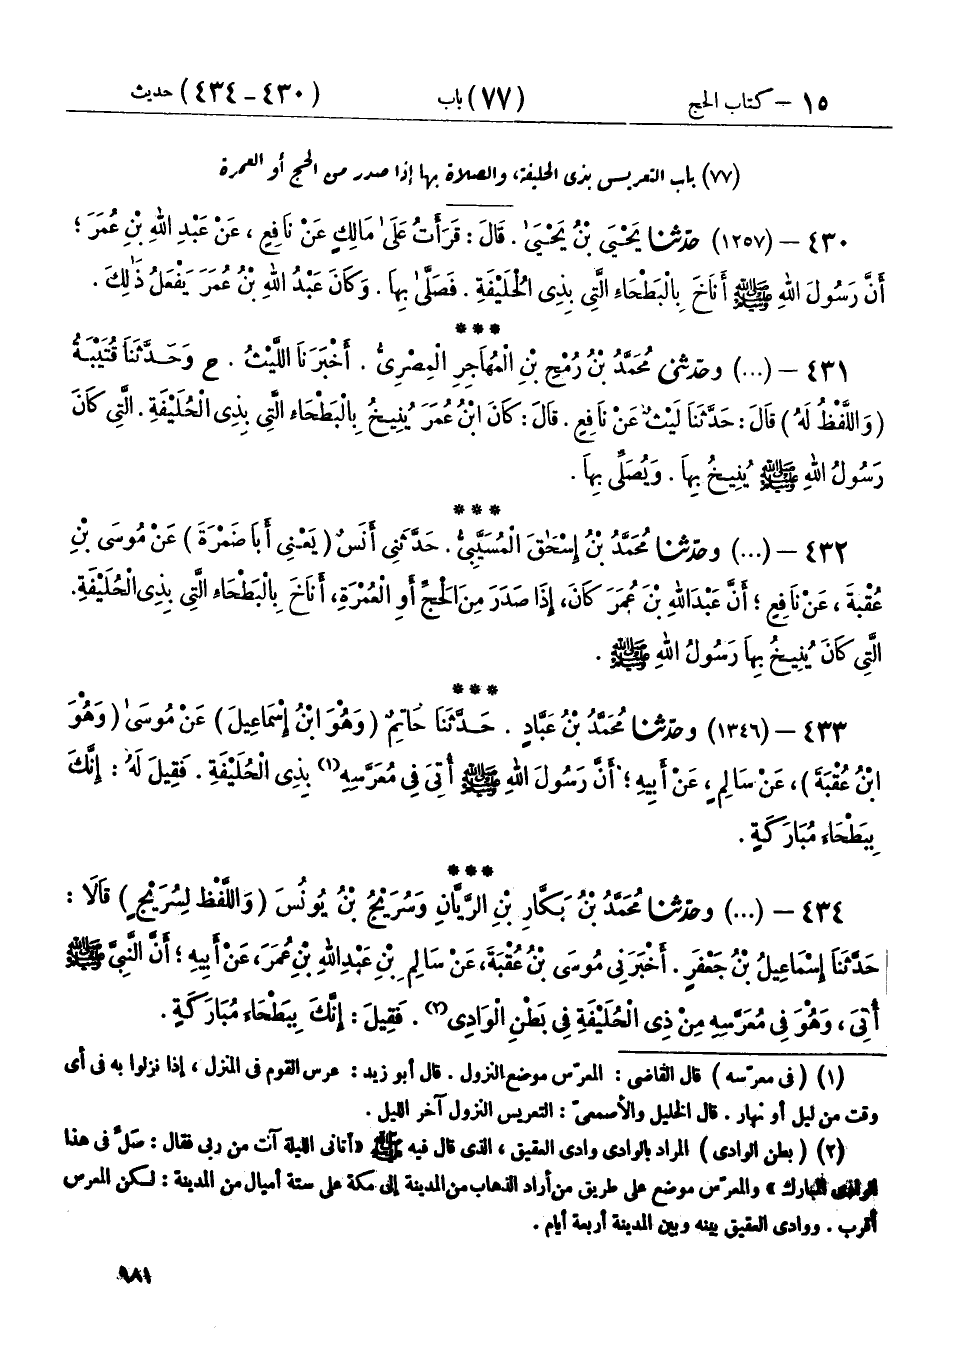 ١٥ – كتاب الحج (٧٧) باب (٤٣٠ – ٤٣٤) حديث
(٧٧) باب التعريس بذى الحليفة، والصلاة بها إذا صدر من الحج أو العمرة
٤٣٠ – (١٢٥٧) حدّثنا يَحْيَىٰ بْنُ يَحْيَىٰ . قَالَ : قَرَأْتُ عَلَىٰ مَالِكٍ عَنْ نَافِعٍ ، عَنْ عَبْدِ اللهِ بْنِ عُمَرَ ؛
أَنَّ رَسُولَ اللهِ ﷺ أَنَاخَ بِالْبَطْحَاءِ الَّتِي بِذِى الْحُلَيْفَةِ . فَصَلَّىٰ بِهَا . وَكَانَ عَبْدُ اللهِ بْنُ عُمَرَ يَفْعَلُ ذَٰلِكَ .
***
٤٣١ – (...) وحدّثني مُحَمَّدُ بْنُ رُمْحِ بْنِ الْمُهَاجِرِ الْمِصْرِىُّ . أَخْبَرَنَا اللَّيْثُ . ح وَحَدَّثَنَا قُتَيْبَةُ
(وَاللَّفْظُ لَهُ) قَالَ : حَدَّثَنَا لَيْثٌ عَنْ نَافِعٍ . قَالَ : كَانَ ابْنُ عُمَرَ يُنِيخُ بِالْبَطْحَاءِ الَّتِي بِذِى الْحُلَيْفَةِ . الَّتِي كَانَ
رَسُولُ اللهِ ﷺ يُنِيخُ بِهَا . وَيُصَلِّى بِهَا .
***
٤٣٢ – (...) وحدّثنا مُحَمَّدُ بْنُ إِسْحَٰقَ الْمُسَيَّبِىُّ . حَدَّثَنِي أَنَسٌ (يَعْنِي أَبَا ضَمْرَةَ) عَنْ مُوسَى بْنِ
عُقْبَةَ ، عَنْ نَافِعٍ ؛ أَنَّ عَبْدَ اللهِ بْنَ عُمَرَ كَانَ، إِذَا صَدَرَ مِنَ الْحَجِّ أَوِ الْعُمْرَةِ، أَنَاخَ بِالْبَطْحَاءِ الَّتِي بِذِى الْحُلَيْفَةِ.
الَّتِي كَانَ يُنِيخُ بِهَا رَسُولُ اللهِ ﷺ .
***
٤٣٣ – (١٣٤٦) وحدّثنا مُحَمَّدُ بْنُ عَبَّادٍ . حَدَّثَنَا حَاتِمٌ (وَهُوَ ابْنُ إِسْمَاعِيلَ) عَنْ مُوسَىٰ (وَهُوَ
ابْنُ عُقْبَةَ)، عَنْ سَالِمٍ، عَنْ أَبِيهِ ؛ أَنَّ رَسُولَ اللهِ ﷺ أُتِىَ فِي مُعَرَّسِهِ(١) بِذِى الْحُلَيْفَةِ . فَقِيلَ لَهُ : إِنَّكَ
بِبَطْحَاءَ مُبَارَكَةٍ .
***
٤٣٤ – (...) وحدّثنا مُحَمَّدُ بْنُ بَكَّارِ بْنِ الرَّيَّانِ وَسُرَيْجُ بْنُ يُونُسَ (وَاللَّفْظُ لِسُرَيْجٍ) قَالَا :
حَدَّثَنَا إِسْمَاعِيلُ بْنُ جَعْفَرٍ . أَخْبَرَنِي مُوسَى بْنُ عُقْبَةَ، عَنْ سَالِمِ بْنِ عَبْدِ اللهِ بْنِ عُمَرَ، عَنْ أَبِيهِ ؛ أَنَّ النَّبِىَّ ﷺ
أُتِىَ ، وَهُوَ فِي مُعَرَّسِهِ مِنْ ذِي الْحُلَيْفَةِ فِي بَطْنِ الْوَادِى(٢) . فَقِيلَ : إِنَّكَ بِبَطْحَاءَ مُبَارَكَةٍ .
(١) (فى معرّسه) قال القاضى : المعرّس موضع النزول . قال أبو زيد : عرس القوم فى المنزل ، إذا نزلوا به فى أى
وقت من ليل أو نهار . قال الخليل والأصمعىّ : التعريس النزول آخر الليل .
(٢) (بطن الوادى) المراد بالوادى وادى العقيق ، الذى قال فيه ﷺ «أتانى الليلة آت من ربى فقال : صَلِّ فى هذا
الوادى المبارك» والمعرّس موضع على طريق من أراد الذهاب من المدينة إلى مكة على ستة أميال من المدينة : لكن المعرس
أقرب . ووادى العقيق بينه وبين المدينة أربعة أيام .
٩٨١